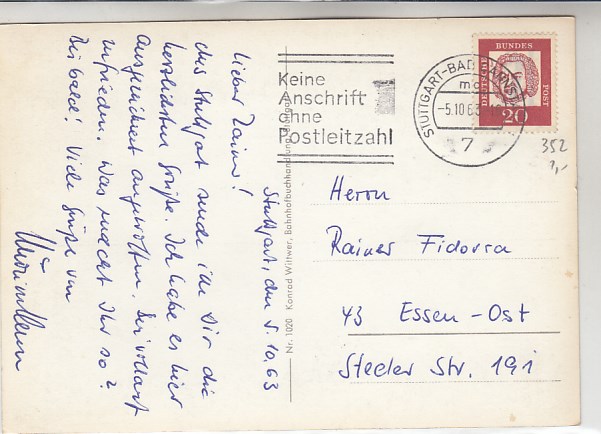 Stuttgart, den 5.10.63
Lieber Rainer!
Aus Stuttgart sende ich Dir die
herzlichsten Grüße. Ich habe es hier
ausgezeichnet angetroffen. Bei vollauf
zufrieden. Was macht Ihr so?
Bis bald! Viele Grüße von
Nr. 1020 Konrad Wittwer, Bahnhofbuchhandlung
Keine
Anschrift
ohne
Postleitzahl
STUTTGART-BAD CANNSTATT
-5.10.63
7
DEUTSCHE
BUNDES
POST
20
352
1,-
Herrn
Rainer Fidorra
43 Essen-Ost
Steeler Str. 191